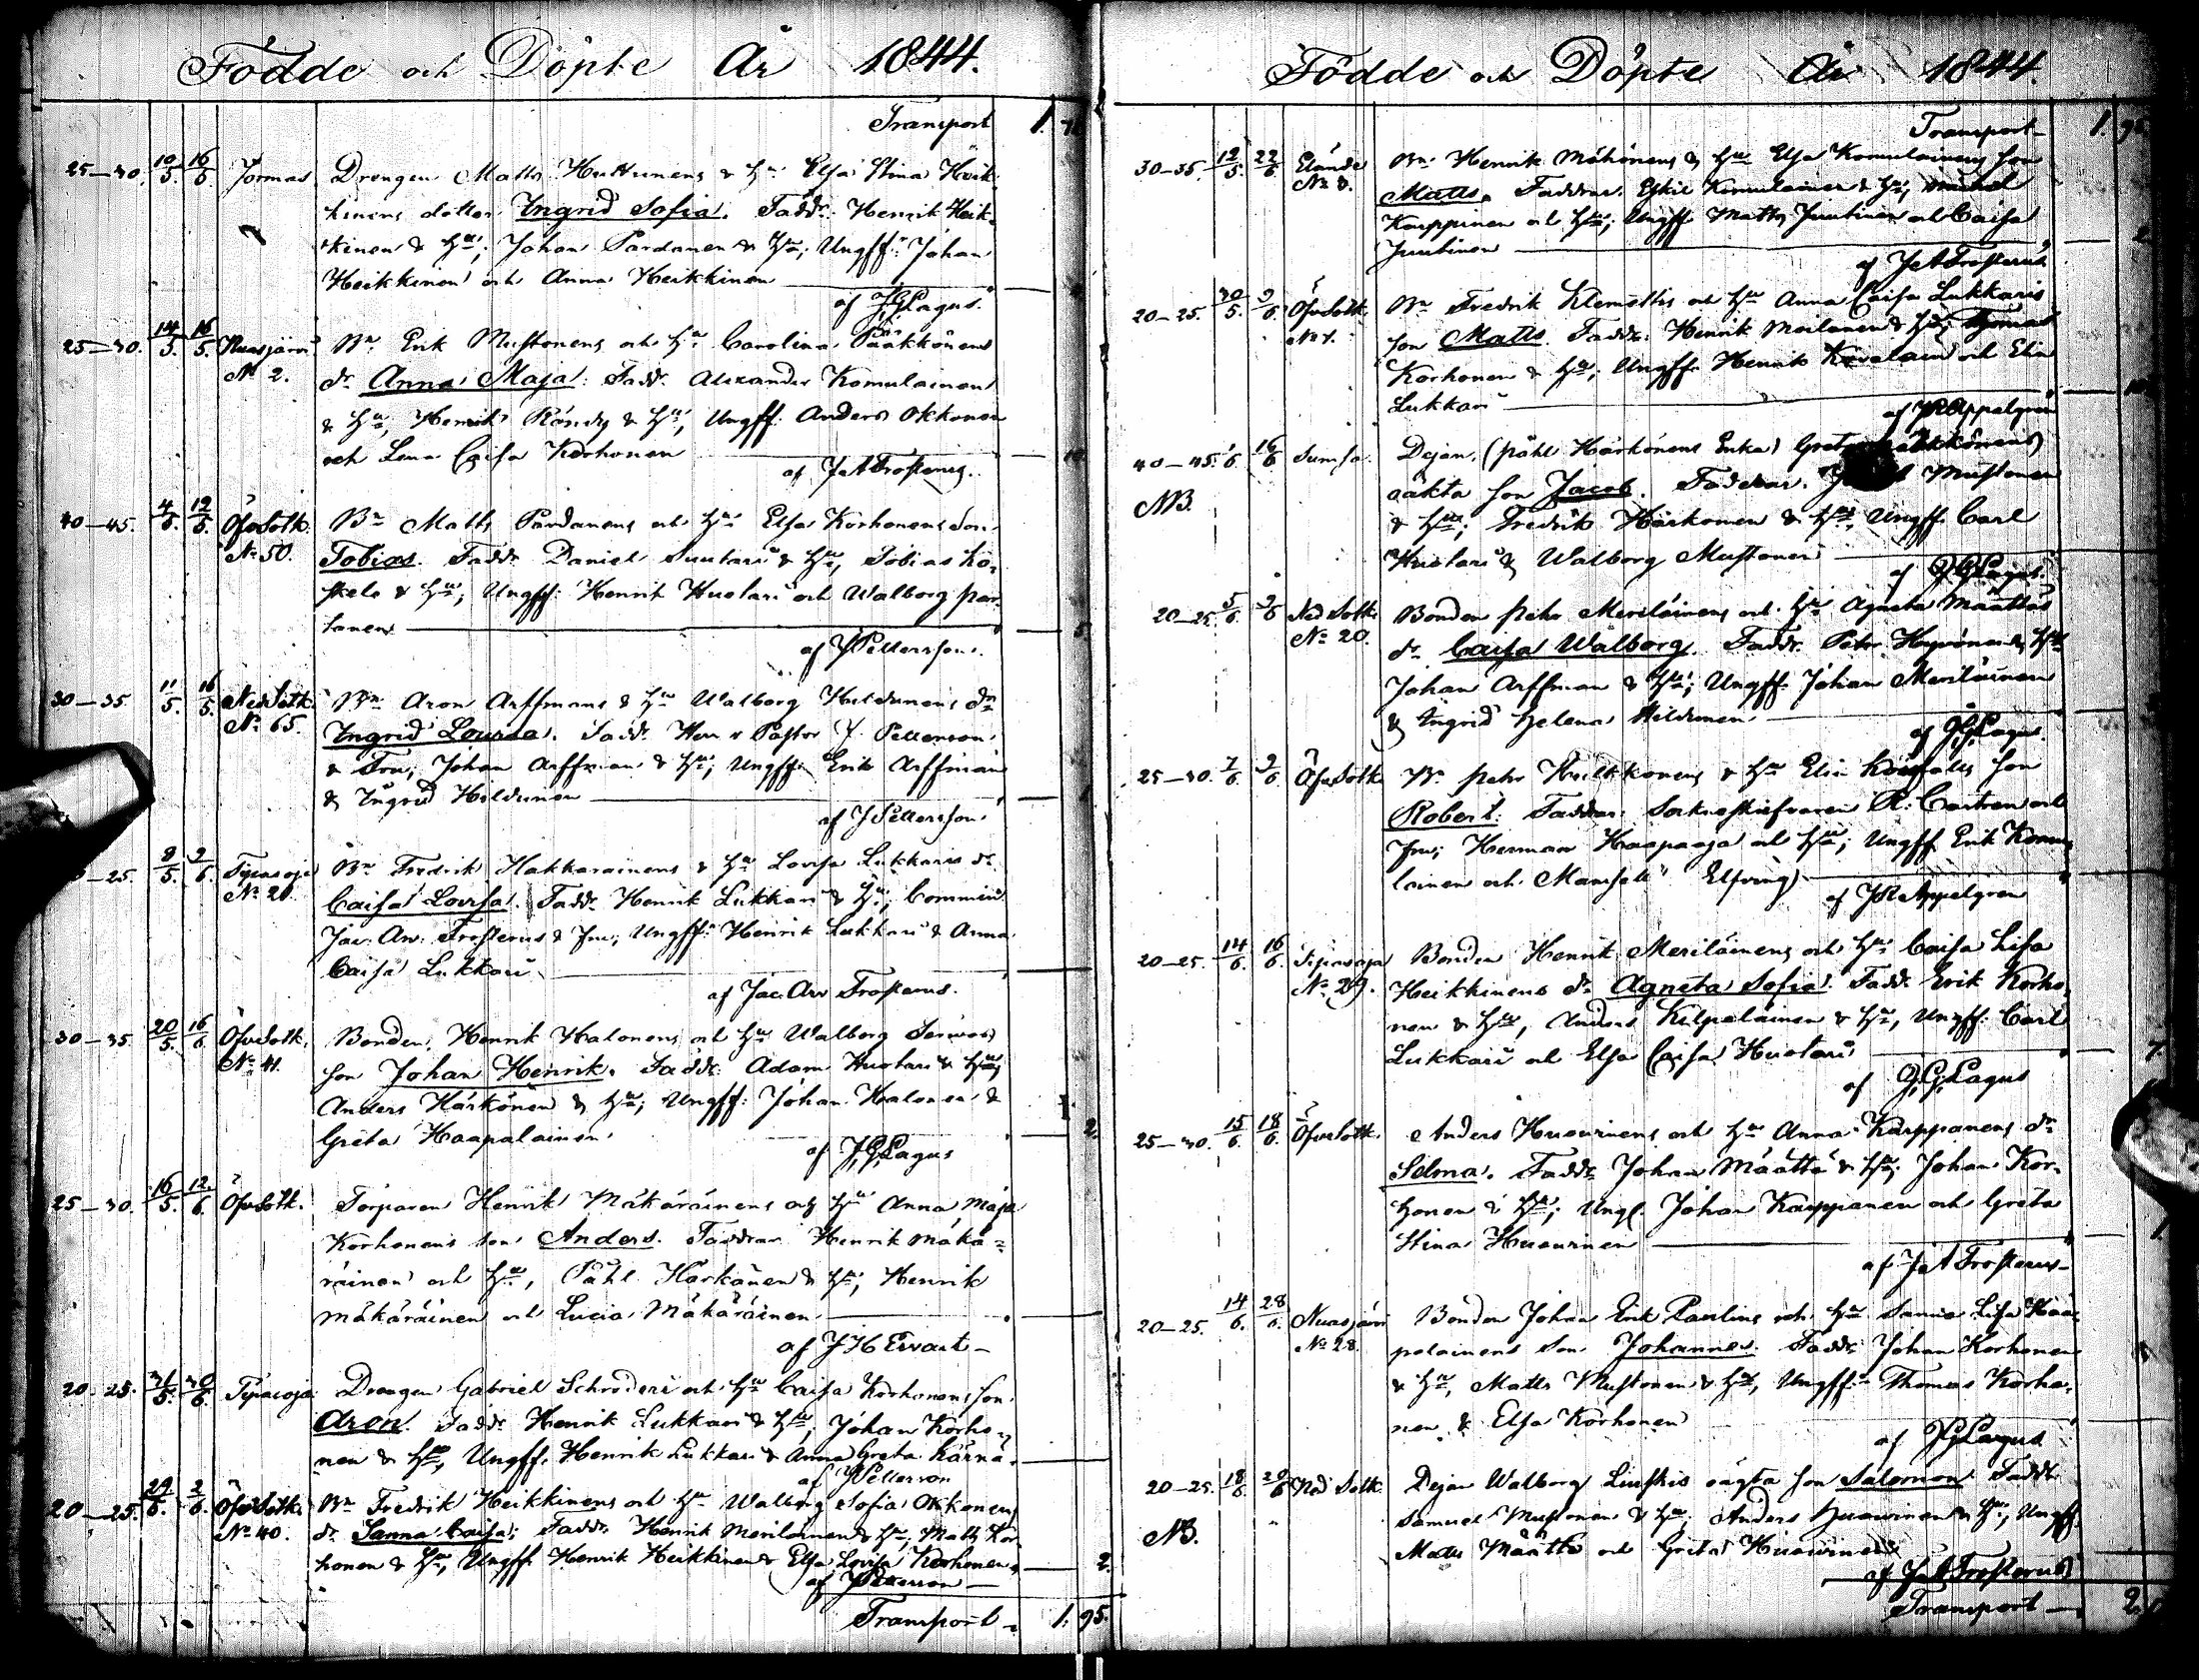 Födde och Döpte År 1844.
Transport 1.
25—30. 10/5. 16/5. Jormas Drengen Matts Huttunens & Hu Elsa Stina Heik-
kinens dotter Ingrid Sofia. Fadd: Henrik Heik-
kinen & Hu; Johan Pardanen & Hu; Ungff: Johan
Heikkinen och Anna Heikkinen
af J.G.Lagus.
25—30. 14/5. 16/5. Nuasjärvi Bn Erik Mustonens och Hu Carolina Pääkkönens
No 2. dr Anna Maja. Fadd. Alexander Komulainen
& Hu; Henrik Röndy & Hu, Ungff. Anders Okkonen
och Lena Caisa Korhonen
af JaATrosterus.
40—45. 4/5. 12/5. ÖfvSotk. Bn Matts Pardanens och Hu Elsa Korhonens Son
No 50. Tobias. Fadd. Daniel Suutari & Hu, Tobias Ko-
skelo & Hu; Ungff. Henrik Huotari och Walborg par-
tanen
af JPettersson.
30—35. 11/5. 16/5. NedSotk. Bn Aron Arffmans & Hu Walborg Huldunens dr
No 65. Ingrid Lovisa. Fadd. Herr v Pastor J. Petterson
& Fru; Johan Arffman & Hu; Ungff. Erik Arffman
& Ingrid Heldunen
af JPettersson.
—25. 8/5. 2/6. Tipasoja Bn Fredrik Hakkarainens & Hu Lovisa Lukkaris dr
No 20. Caisa Lovisa. Fadd. Henrik Lukkari & Hu; Commin.
Jac. Arv. Trosterus & Fru; Ungff. Henrik Lukkari & Anna
Caisa Lukkari
af Jac. Arv Trosterus.
30—35. 20/5. 16/6 ÖfvSotk. Bonden Henrik Halonens och Hu Walborg
No 41. son Johan Henrik. Fadd. Adam Huotari & Hu;
Anders Härkönen & Hu; Ungff. Johan Halonen &
Greta Haapalainen.
af J.G.Lagus
25—30. 16/5. 12/6. ÖfvSotk. Torparen Henrik Mäkäräinens och Hu Anna Maja
Korhonens son Anders. Faddrar Henrik Mäkä-
räinen och Hu, Påhl Härkönen & Hu; Henrik
Mäkäräinen och Lucia Mäkäräinen
af JHEwart—
20—25. 31/5. 30/6. Tipasoja Drengen Gabriel Schröders och Hu Caisa Korhonens son
Aron. Fadd. Henrik Lukkari & Hu, Johan Korho-
nen & Hu, Ungff. Henrik Lukkari & Anna Greta Kärnä.
af JPetterson
20—25. 29/5. 2/6. ÖfvSotk. Bn Fredrik Heikkinens och Hu Walborg Sofia Okkonens
No 40. dr Sanna Caisa; Fadd. Henrik Meriläinen & Hu, Matts Kor-
honen & Hu, Ungff. Henrik Heikkinen & Elsa Lovisa Korhonen.
af JPetterson
Transport 1. 95.
Födde och Döpte År 1844.
Transport 1. 95
30—35. 12/5. 22/6 Eländs Bn Henrik Möhönens & Hu Elsa Komulainens son
No 8. Matts. Faddrar. Eskil Komulainen & Hu; Michel
Karppinen och Hu; Ungff. Matts Juntinen och Caisa
Juntinen
af JaATrosterus
20—25. 30/5. 9/6. ÖfvSotk. Bn Fredrik Klemettis och Hu Anna Caisa Lukkaris
son Matts. Fadd. Henrik Moilanen & Hu; Thomas
Korhonen & Hu; Ungff. Henrik och Elin
Lukkari
af JRAppelgren
40—45. /6 16/6 Sumsa. Dejan. (påhl Härkönens Enka) Greta
NB. oäkta son Jacob. Faddrar. Mustonen
& Hu; Fredrik Härkönen & Hu; Ungff. Carl
Huotari & Walborg Mustonen
af J.G.Lagus.
20—25 5/6. 9/6 NedSotk. Bonden petr Meriläinens och Hu Agneta Määttäs
No 20. dr Caisa Walborg. Fadd. Petr & Hu
Johan Arffman & Hu; Ungff. Johan Meriläinen
& Ingrid Helena Heldunen.
af J.G.Lagus.
25—30. 7/6. 9/6 ÖfvSotk. Bn petr Hulkkonens & Hu Elin son
Robert. Faddrar. Sockneskrifvaren R. Castren och
Fru; Herman Haapaoja och Hu; Ungff Erik Komu-
lainen och Mamsell Elfving
af JRAppelgren
20—25. 14/6. 16/6. Tipasoja Bonden Henrik Meriläinens och Hu Caisa Lisa
No 29. Heikkinens dr Agneta Sofia. Fadd. Erik Korho-
nen & Hu, Anders Kilpeläinen & Hu, Ungff. Carl
Lukkari och Elsa Caisa Huotari
af J.G.Lagus
25—30. 15/6. 18/6. ÖfvSotk. Anders Huovinens och Hu Anna Karppanens dr
Selma. Fadd. Johan Määttä & Hu; Johan Kor-
honen & Hu; Ungf. Johan Karppanen och Greta
Stina Huovinen
af JaATrosterus
20—25. 14/6. 28/6. Nuasjärvi Bonden Johan Erik Paulins och Hu Sanna Lisa Haa-
No 28. palainens son Johannes. Fadd. Johan Korhonen
& Hu, Matts Mustonen & Hu, Ungff. Thomas Korho-
nen & Elsa Korhonen
af J.G.Lagus
20—25. 18/6 20/6 Ned Sotk. Dejan Walborg oägta son Salomon. Fadd.
NB. Samuel Mustonen & Hu; Anders Huovinen & Hu, Ungff.
Matts Määttä och Greta Huovinen
af JaATrosterus
Transport — 2.